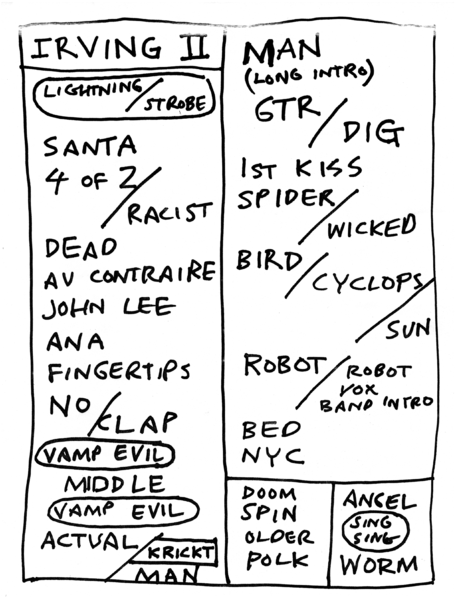 IRVING II
LIGHTNING/
STROBE
SANTA
4 OF 2/
RACIST
DEAD
AU CONTRAIRE
JOHN LEE
ANA
FINGERTIPS
NO/CLAP
VAMP EVIL
MIDDLE
VAMP EVIL
ACTUAL/
KRICKT
MAN
MAN
(LONG INTRO)
GTR/
DIG
1ST KISS
SPIDER/
WICKED
BIRD/
CYCLOPS/
SUN
ROBOT/ROBOT
VOX
BAND INTRO
BED
NYC
DOOM
SPIN
OLDER
POLK
ANGEL
SING
SING
WORM